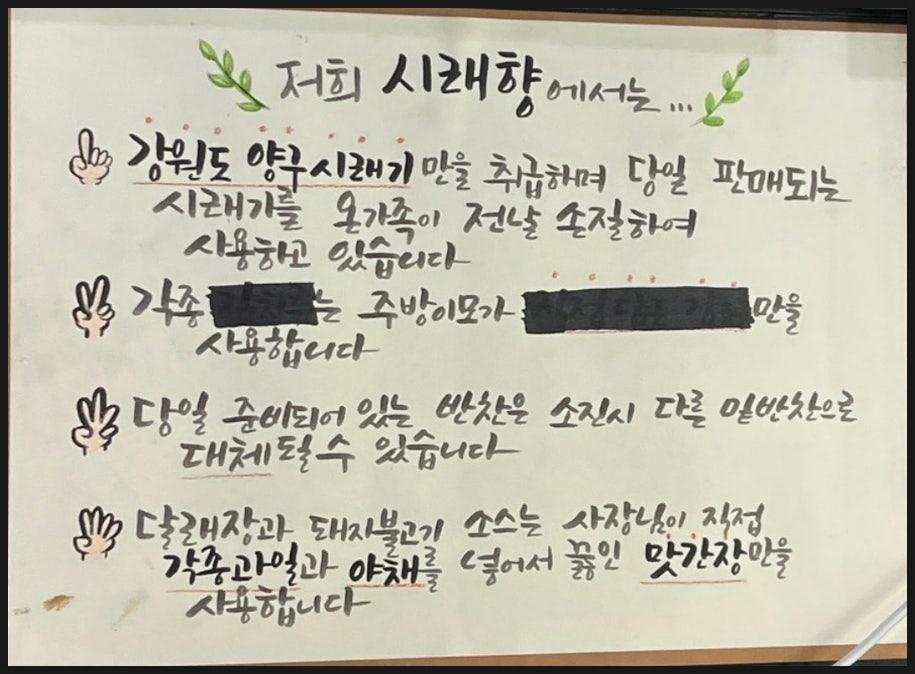 저희 시래향에서는...
강원도 양구 시래기만을 취급하며 당일 판매되는
시래기를 온가족이 전날 손질하여
사용하고 있습니다
각종 는 주방이모가 만을
사용합니다
당일 준비되어 있는 반찬은 소진시 다른 밑반찬으로
대체될 수 있습니다
달래장과 돼지불고기 소스는 사장님이 직접
각종과일과 야채를 넣어서 끓인 맛간장만을
사용합니다